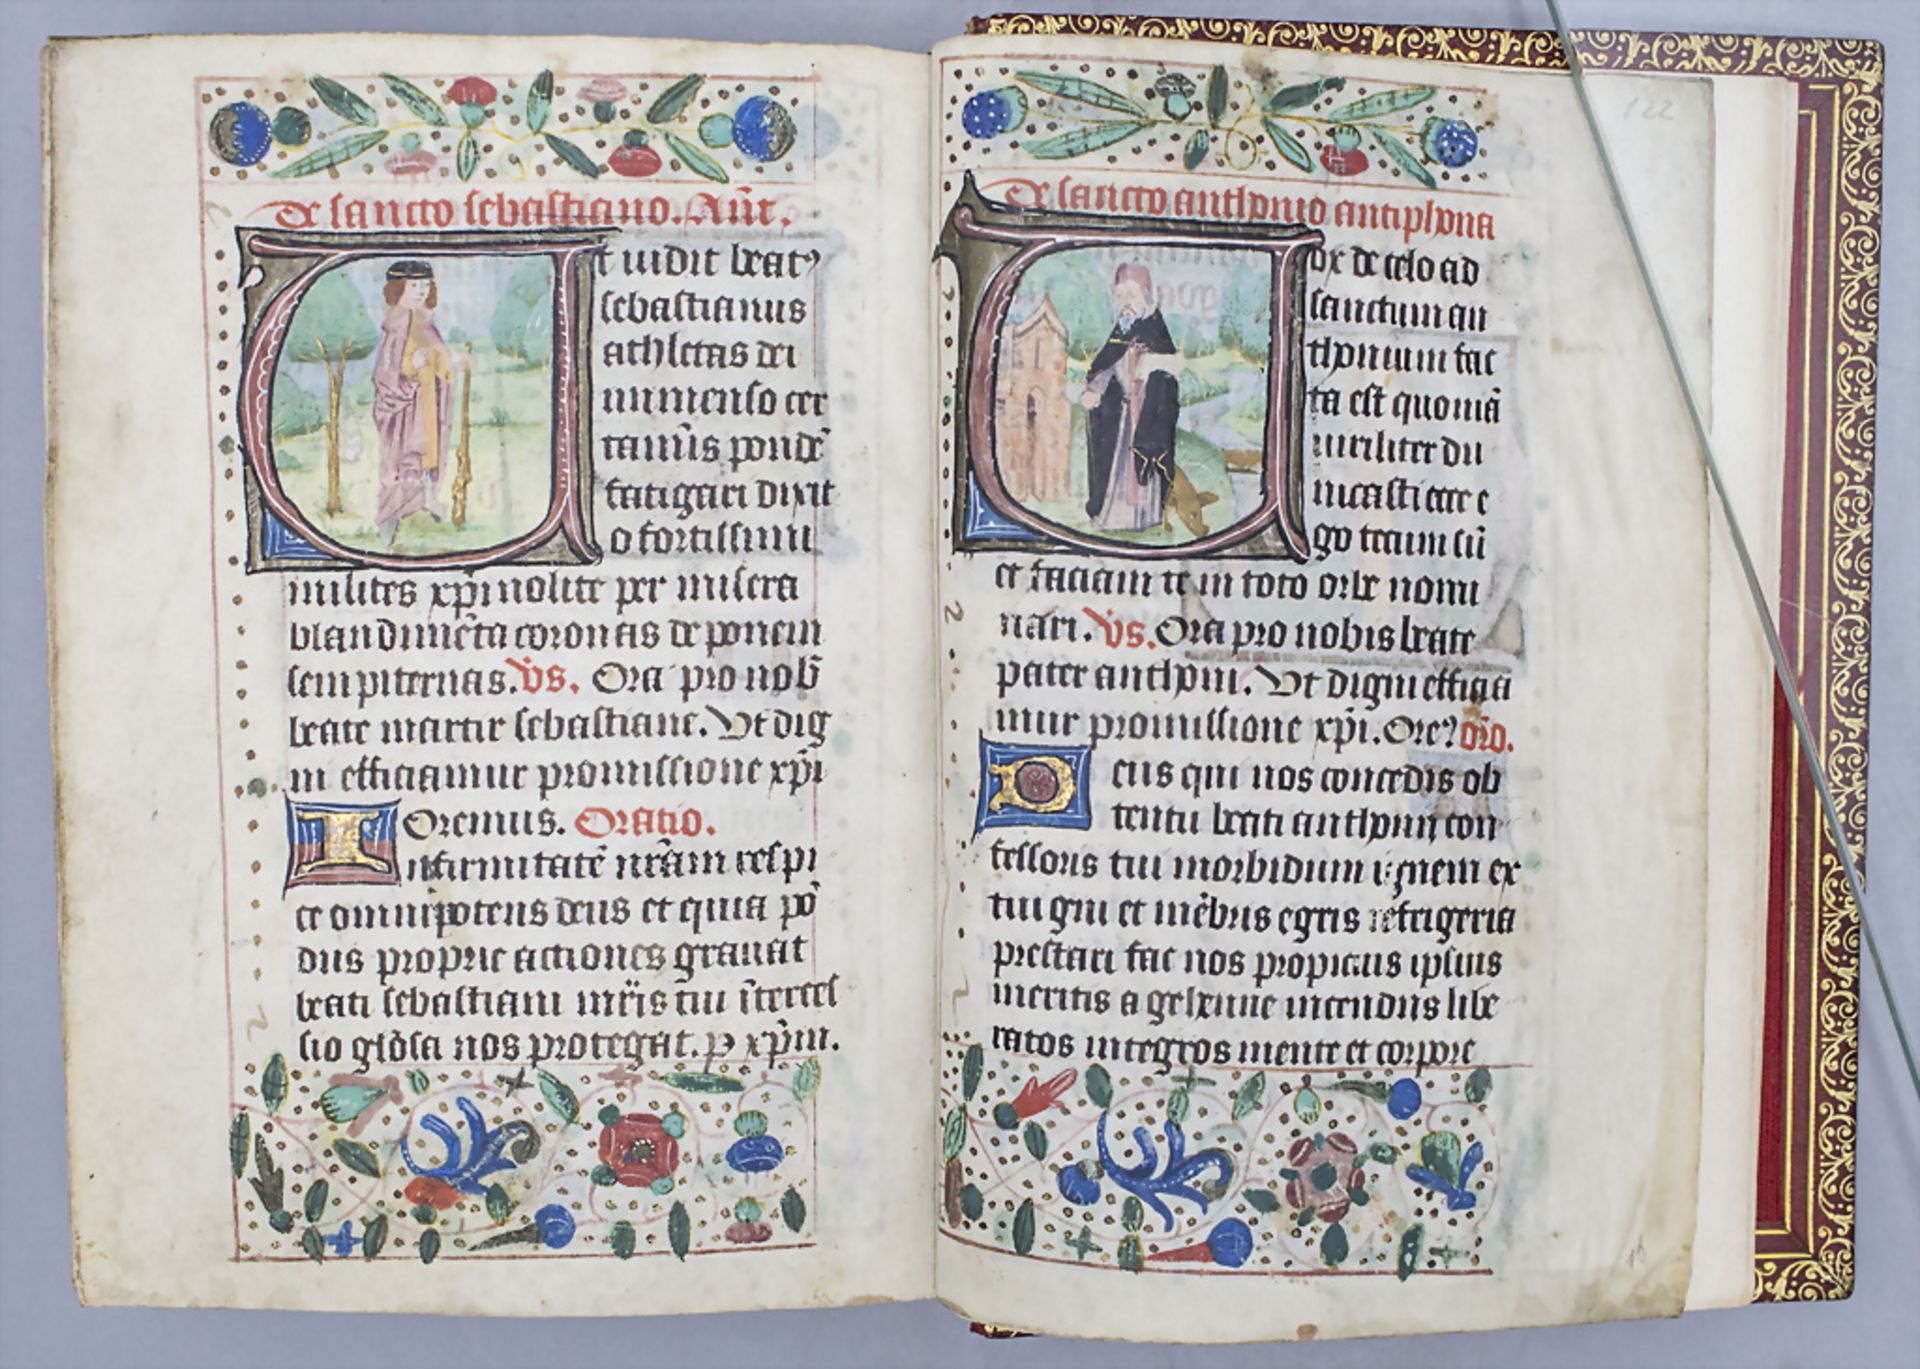 De sancto sebastiano. Añt.
t uidit beatꝰ
sebastianus
athletas dei
immenso cer
taminis pondẽ
fatigari dixit
o fortissimi
milites xp̃i nolite per misera
blandimẽta coronas deponem
sempiternas. Vs. Ora pro nob̃
beate martir sebastiane. Vt dig
ni efficiamur promissione xp̃i
Oremus. Oratio.
Infirmitatẽ nr̃am respi
ce omnipotens deus et quia põ
dus proprie actionis grauat
beati sebastiani mr̃is tui ĩterces
sio gl̃osa nos protegat. p xp̃m.
De sancto anthonio antiphona
ox de celo ad
sanctum an
thonium fac
ta est quoniã
uiriliter di
micasti ecce e
go tecum sũ
et faciam te in toto orbe nomi
nari. Vs. Ora pro nobis beate
pater anthoni. Vt digni efficia
mur promissione xp̃i. Oreꝰ oр̃o.
Deus qui nos concedis ob
tentu beati anthonij con
fessoris tui morbidum ignem ex
tingui et mẽbris egris refrigeria
prestari fac nos propicius ipsius
meritis a gehenne incendiis libe
ratos integros mente et corpore
122